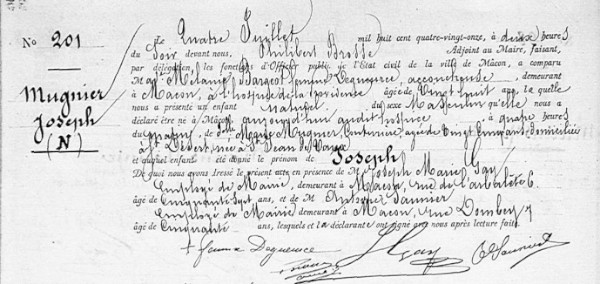 No 201
Mugnier
Joseph
(N)
Le Quatre Juillet mil huit cent quatre-vingt-onze, à deux heures
du Soir devant nous, Philibert Brosse Adjoint au Maire, faisant,
par délégation, les fonctions d'Officier public de l'État civil de la ville de Mâcon, a comparu
Mélanie Bargeot femme Deguence, accoucheuse, demeurant
à Macon, à l'hospice de la Providence âgée de Vingt huit ans, la quelle
nous a présenté un enfant naturel du sexe Masculin qu'elle nous a
déclaré être né à Mâcon, aujourd'hui audit hospice à quatre heures
du matin, de Marie Mugnier, Couturière, agée de Vingt Cinq ans domiciliée
à St Désert, née à St Jean de Vaux
et auquel enfant a été donné le prénom de Joseph
De quoi nous avons dressé le présent acte en présence de M Joseph Marie Gay
Employé de Mairie, demeurant à Macon, rue de l'arbalète 6
âgé de Cinquante Sept ans, et de M Antoine Saunier
Employé de Mairie demeurant à Macon, rue Dombey 7
âgé de Cinquante ans, lesquels et la déclarante ont signé avec nous après lecture faite.
femme Deguence
Gay
Saunier